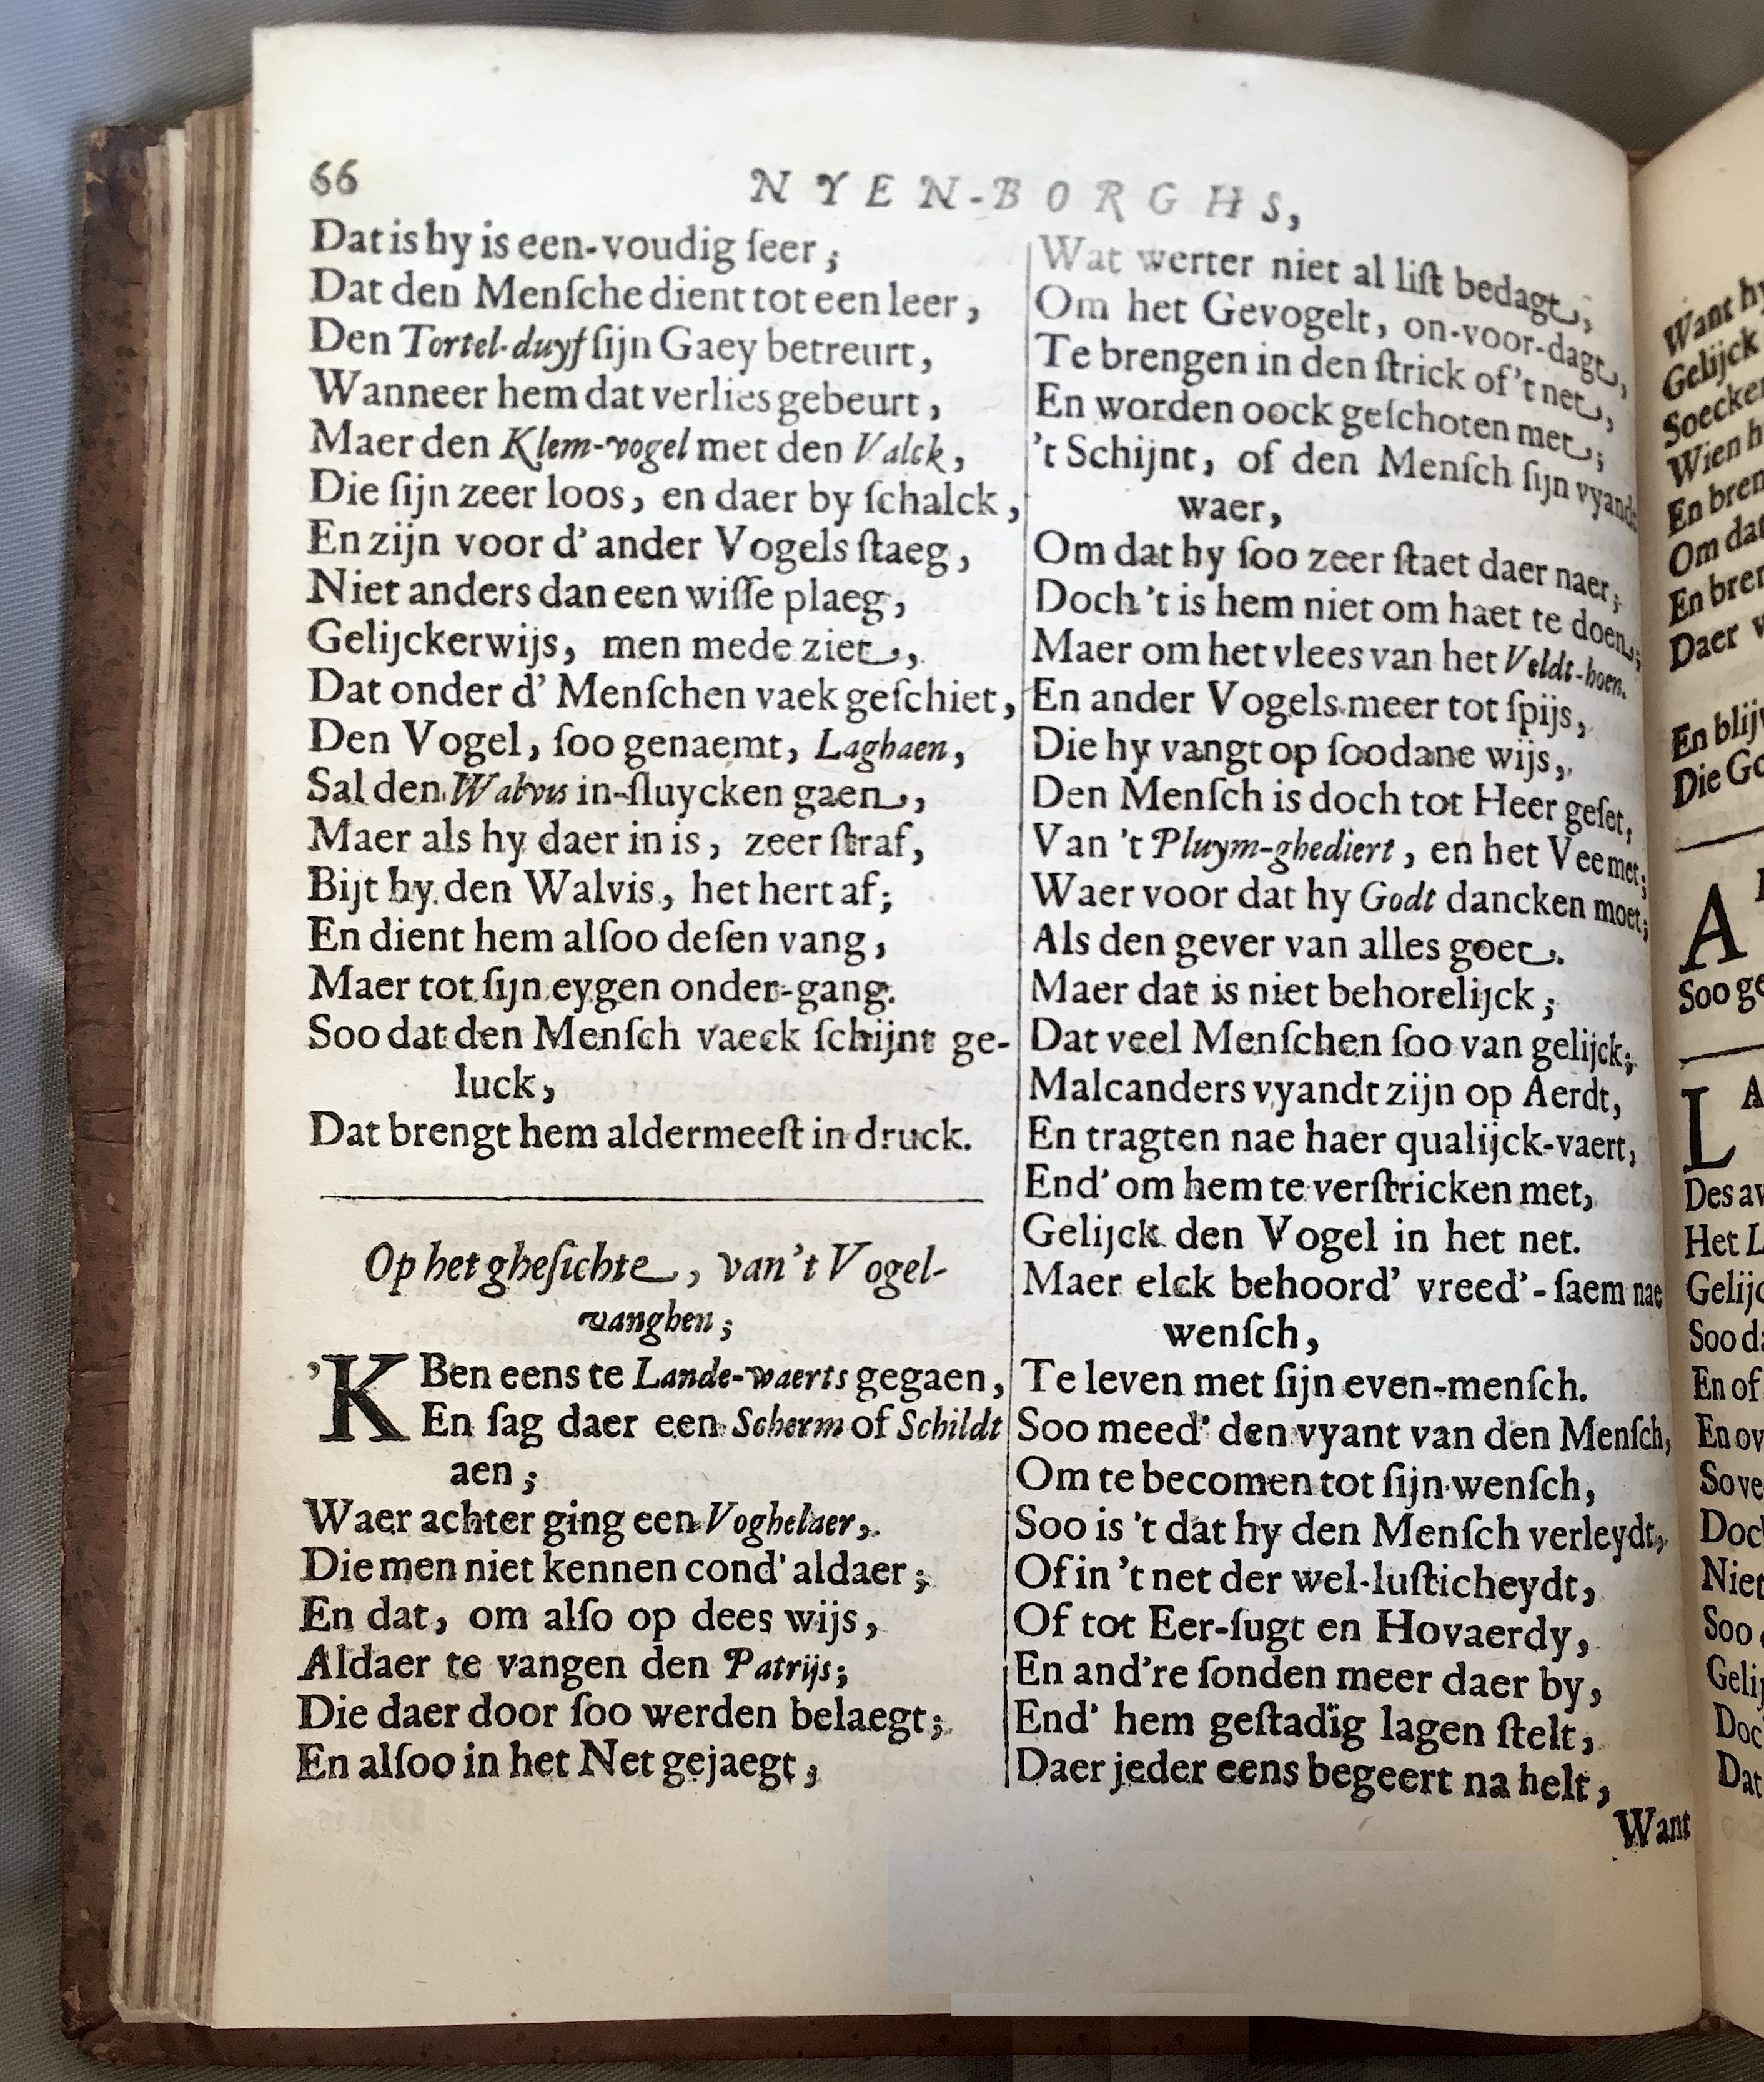 66
NYEN-BORGHS,
Dat is hy is een-voudig ſeer;
Dat den Menſche dient tot een leer,
Den Tortel-duyf ſijn Gaey betreurt,
Wanneer hem dat verlies gebeurt,
Maer den Klem-vogel met den Valck,
Die ſijn zeer loos, en daer by ſchalck,
En zijn voor d' ander Vogels ſtaeg,
Niet anders dan een wiſſe plaeg,
Gelijckerwijs, men mede ziet,
Dat onder d' Menſchen vaek geſchiet,
Den Vogel, ſoo genaemt, Laghaen,
Sal den Walvis in-ſluycken gaen,
Maer als hy daer in is, zeer ſtraf,
Bijt hy den Walvis, het hert af;
En dient hem alſoo deſen vang,
Maer tot ſijn eygen onder-gang.
Soo dat den Menſch vaeck ſchijnt ge-
luck,
Dat brengt hem aldermeeſt in druck.
Op het gheſichte, van't Vogel-
vanghen;
'K Ben eens te Lande-waerts gegaen,
En ſag daer een Scherm of Schildt
aen;
Waer achter ging een Voghelaer,
Die men niet kennen cond' aldaer;
En dat, om alſo op dees wijs,
Aldaer te vangen den Patrijs;
Die daer door ſoo werden belaegt;
En alſoo in het Net gejaegt,
Wat werter niet al liſt bedagt,
Om het Gevogelt, on-voor-dagt,
Te brengen in den ſtrick of 't net,
En worden oock geſchoten met;
't Schijnt, of den Menſch ſijn vyandt
waer,
Om dat hy ſoo zeer ſtaet daer naer;
Doch 't is hem niet om haet te doen,
Maer om het vlees van het Veldt-hoen.
En ander Vogels meer tot ſpijs,
Die hy vangt op ſoodane wijs,
Den Menſch is doch tot Heer geſet,
Van 't Pluym-ghediert, en het Vee met;
Waer voor dat hy Godt dancken moet;
Als den gever van alles goet.
Maer dat is niet behorelijck;
Dat veel Menſchen ſoo van gelijck;
Malcanders vyandt zijn op Aerdt,
En tragten nae haer qualijck-vaert,
End' om hem te verſtricken met,
Gelijck den Vogel in het net.
Maer elck behoord' vreed'-ſaem nae
wenſch,
Te leven met ſijn even-menſch.
Soo meed' den vyant van den Menſch,
Om te becomen tot ſijn wenſch,
Soo is 't dat hy den Menſch verleydt,
Of in 't net der wel-luſticheydt,
Of tot Eer-ſugt en Hovaerdy,
En and're ſonden meer daer by,
End' hem geſtadig lagen ſtelt,
Daer jeder eens begeert na helt,
Want
Want
Gelijck
Wien
En
Om
En
Daer
En
Die
A
Soo
L
Des
Het
Soo
En of
Niet
Soo